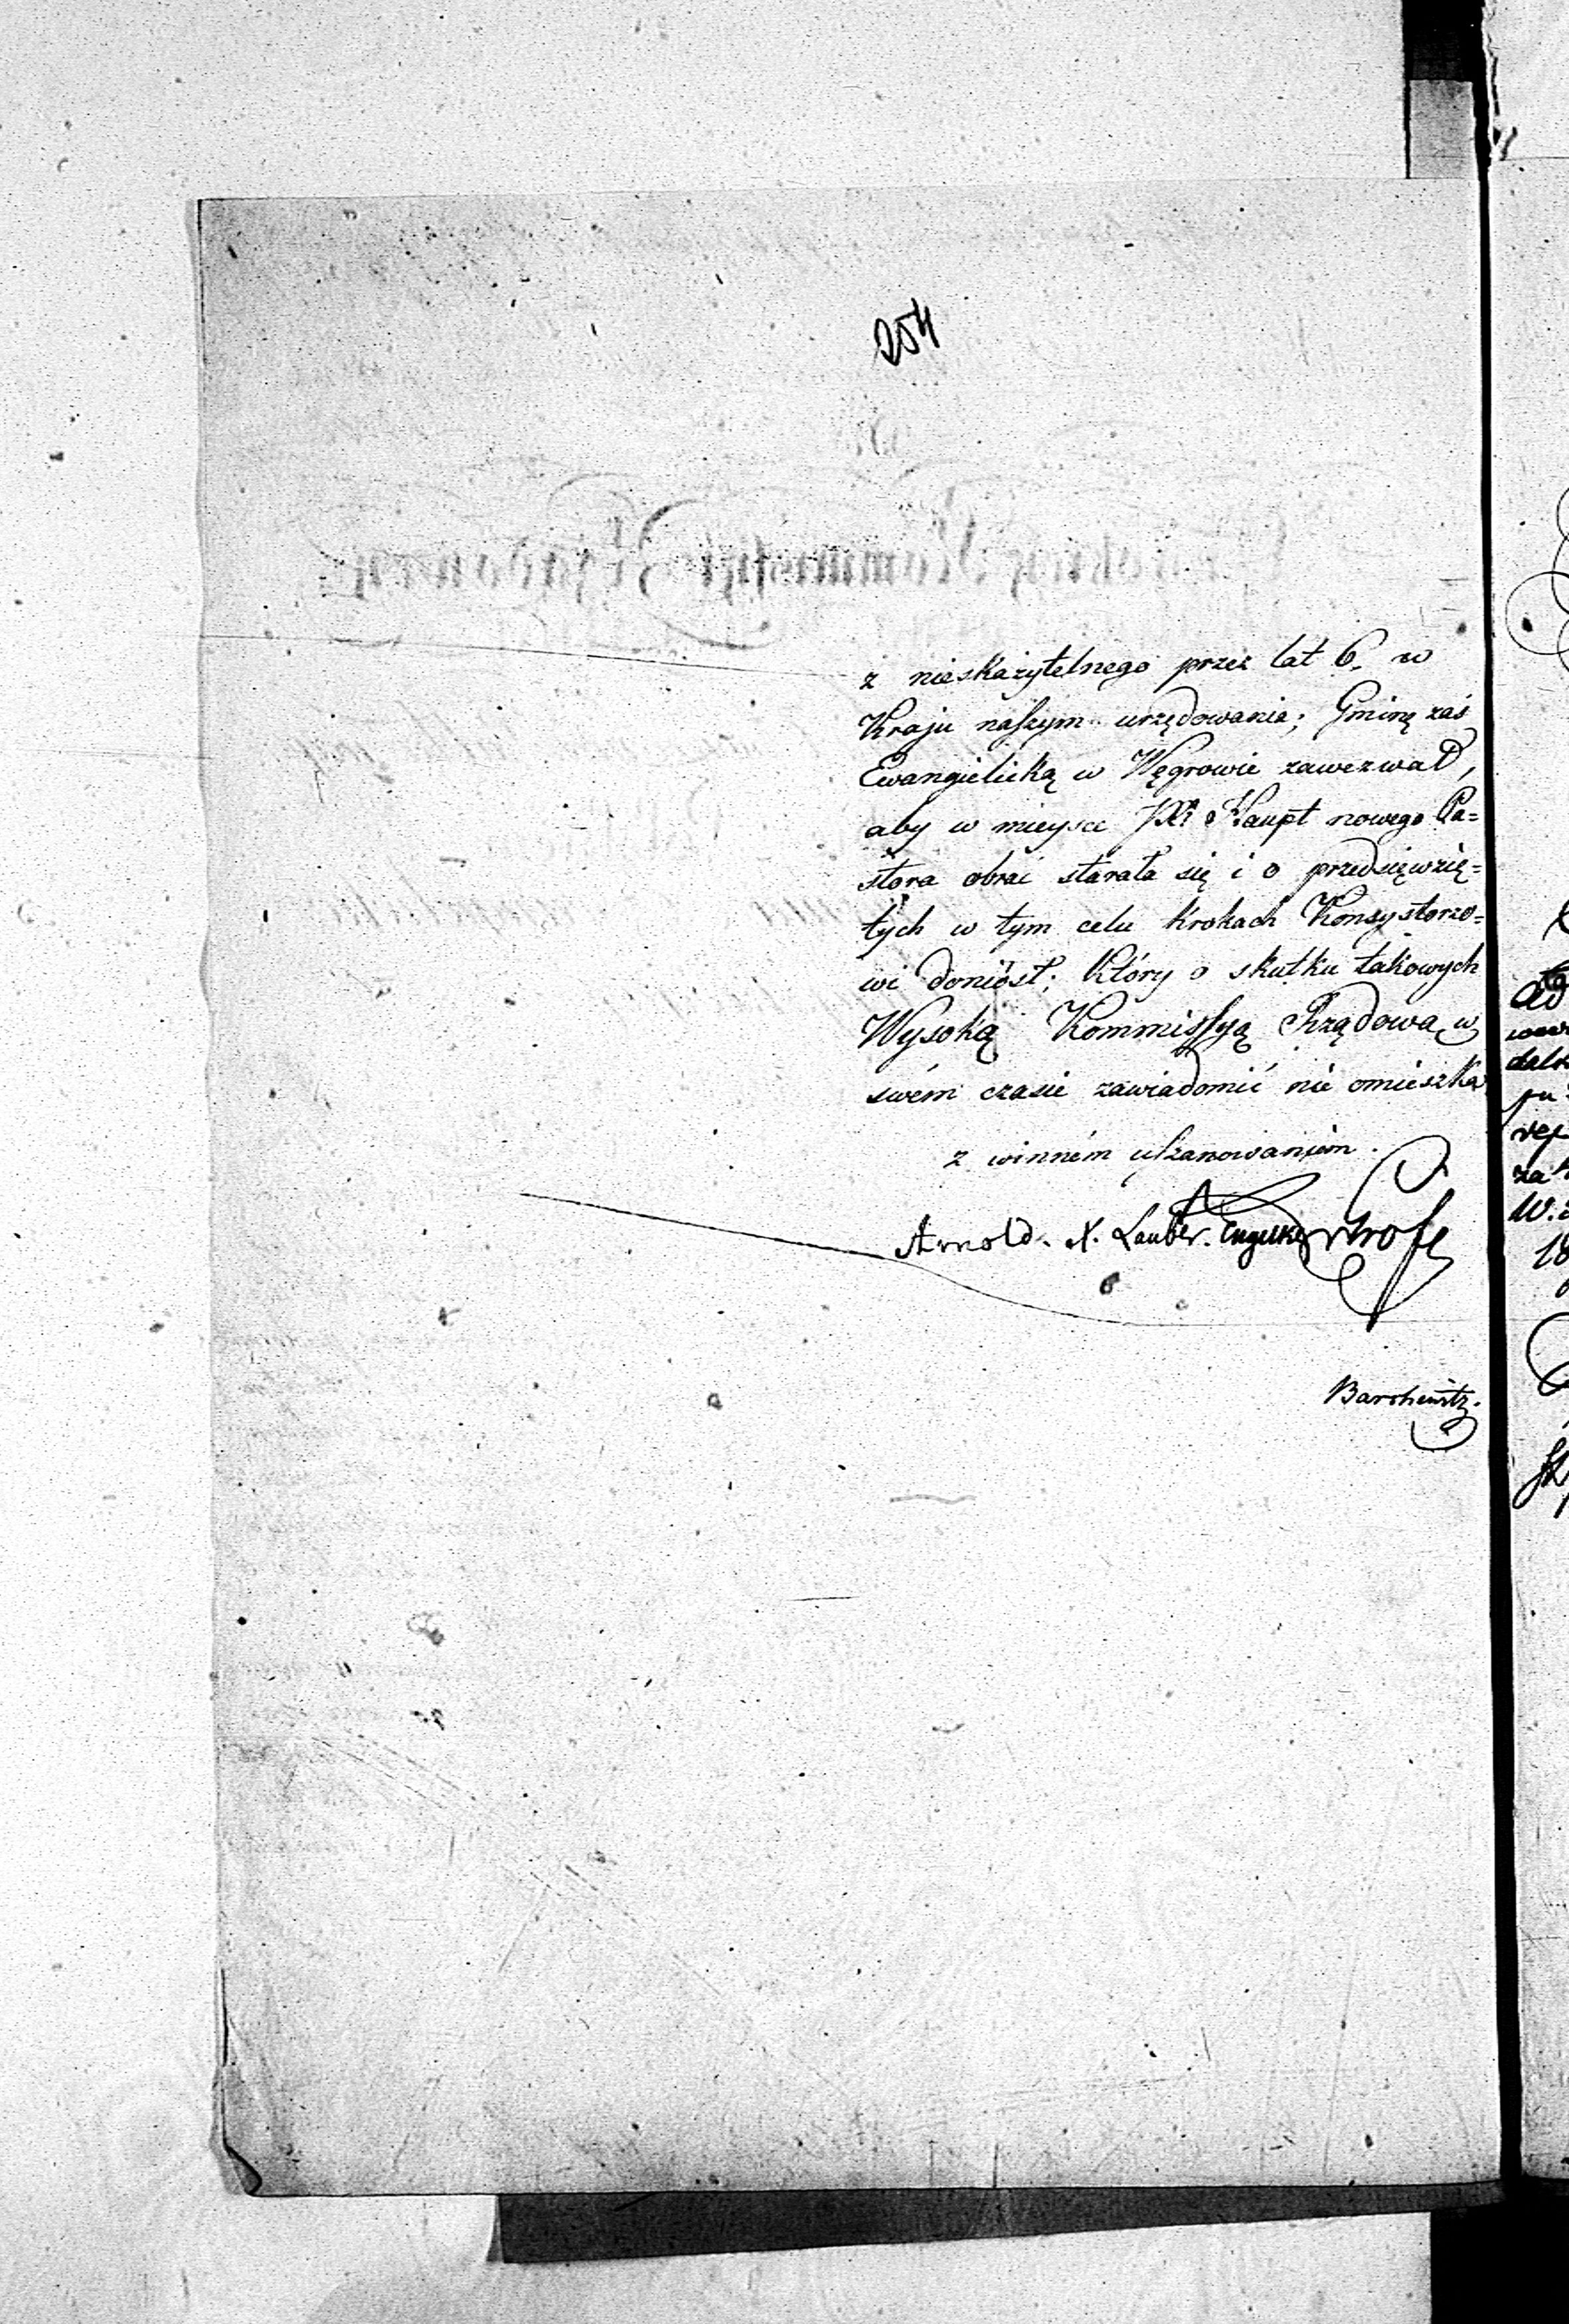 254
z nieskazytelnego przez lat 6. w
Kraju naszym urzędowania; Gminę zaś
Ewangielicką w Węgrowie zawezwał,
aby w mieysce JX Haupt nowego Pa=
stora obrać starała się i o przedsięwzię=
tych w tym celu krokach Konsystorzo=
wi doniosł; który o skutku takowych
Wysoką Kommissyą Rządową w
swém czasie zawiadomić nie omieszka
z winném uszanowaniem.
Arnold. X. Lauber. Engelke